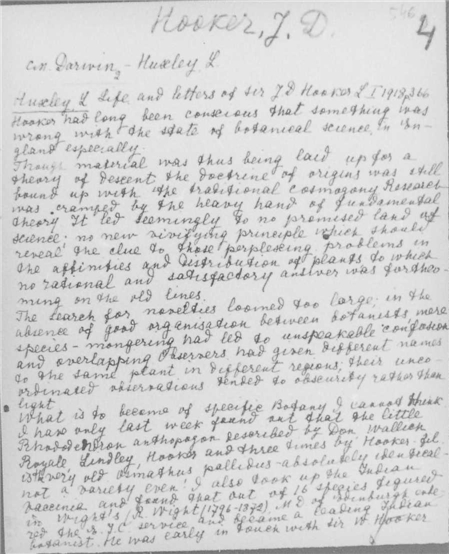 546
4
Hooker, J. D.
см. Darwin2 - Huxley L.
Huxley L Life and letters of Sir J D Hooker L I 1918, 366
Hooker had long been conscious that something was
wrong with the state of botanical science, in En-
gland especially.
Though material was thus being laid up for a
theory of descent the doctrine of origins was still
bound up with the traditional cosmogony Research
was cramped by the heavy hand of fundamental
theory It led seemingly to no promised land of
science: no new vivifying principle which should
reveal the clue to those perplexing problems in
the affinities and distribution of plants to which
no rational and satisfactory answer was forthco-
ming on the old lines.
The search for novelties loomed too large; in the
absence of good organisation between botanists mere
species-mongering had led to unspeakable confusion
and overlapping Observers had given different names
to the same plant in different regions; their unco-
ordinated observations tended to obscurity rather than
light
What is to become of specific Botany I cannot think
I have only last week found out that the little
Rhododendron anthopogon described by Don Wallich
Royale Lindley, Hooker and three times by Hooker fil.
is very old osmothus pallidus - absolutely identical -
not a variety even. I also took up the Indian
vaccinea and found that out of 16 species figured
in Wight's (R. Wight (1796-1872) M D of Edinburgh ente-
red the E. I. C. service and became a leading Indian
botanist. He was early in touch with Sir W Hooker